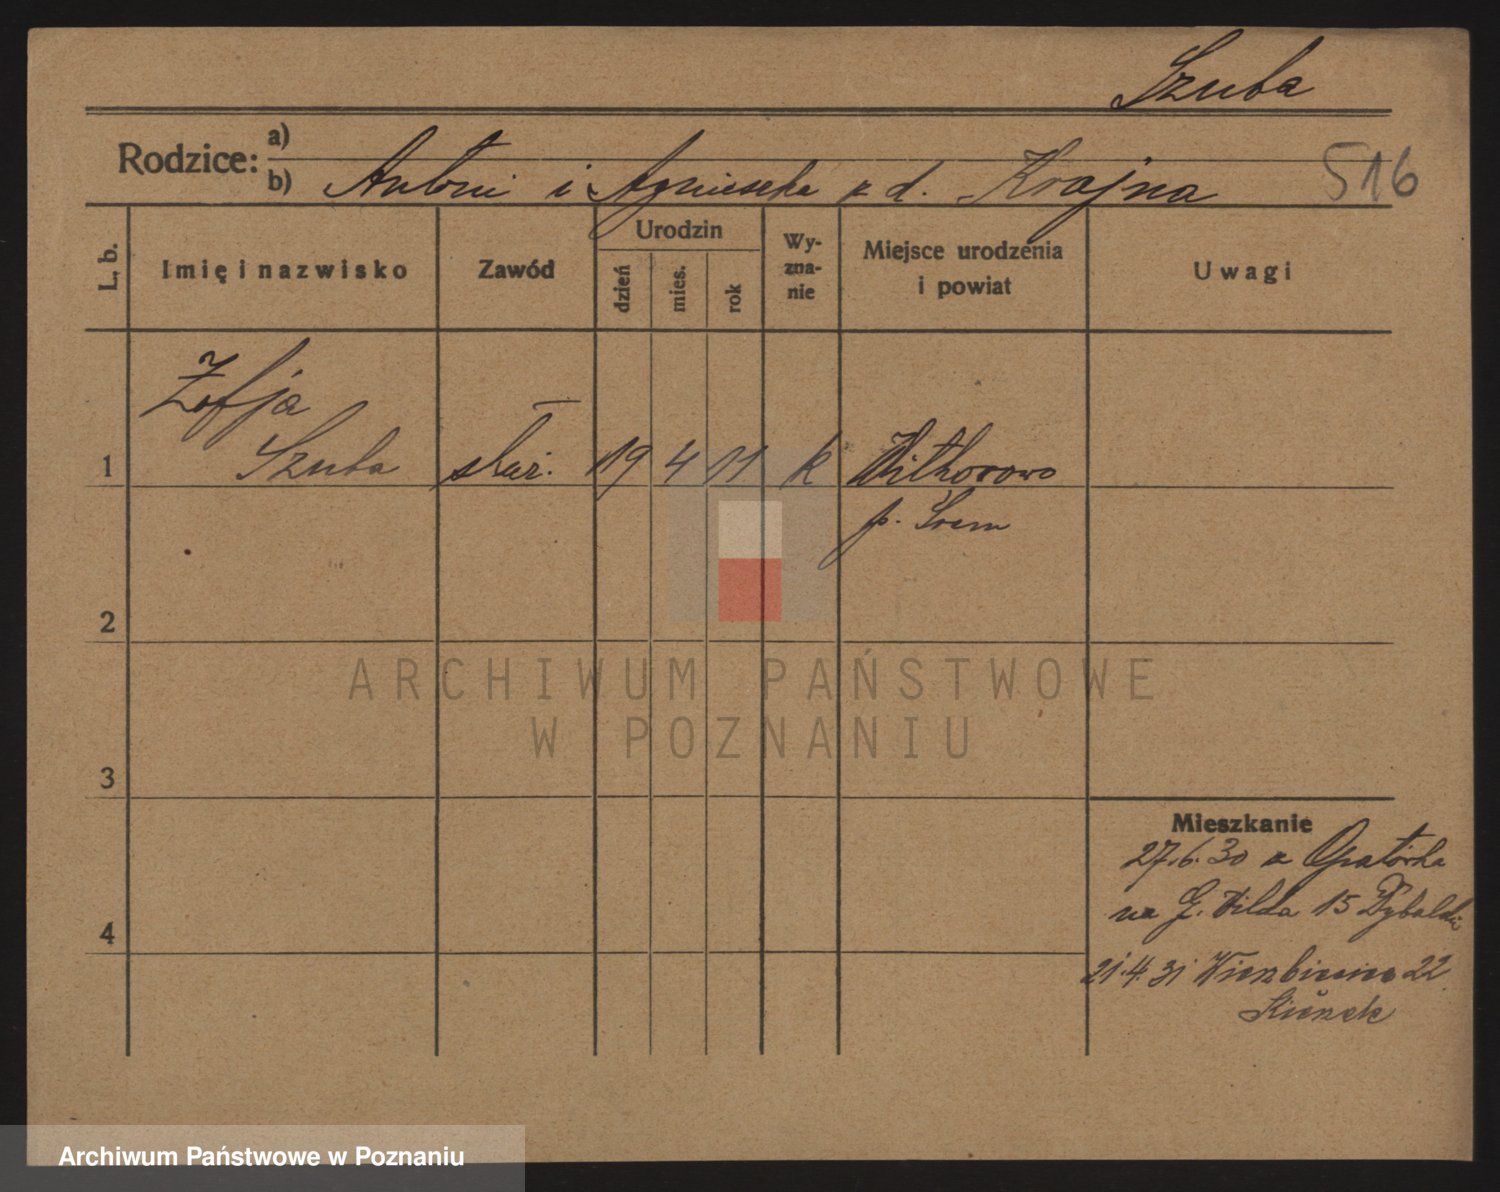 Szuba
Rodzice: a)
b) Antoni i Agnieszka z d. Krajna 516
L. b. Imię i nazwisko Zawód Urodzin dzień mies. rok Wy-zna-nie Miejsce urodzenia i powiat Uwagi
Zofja
1 Szuba służ. 19 4 11 k Witkorowo
p. Śrem
2
3
Mieszkanie
27.6.30 z
na G. Wilda 15
4
21.4.31 22
ARCHIWUM PAŃSTWOWE
W POZNANIU
Archiwum Państwowe w Poznaniu